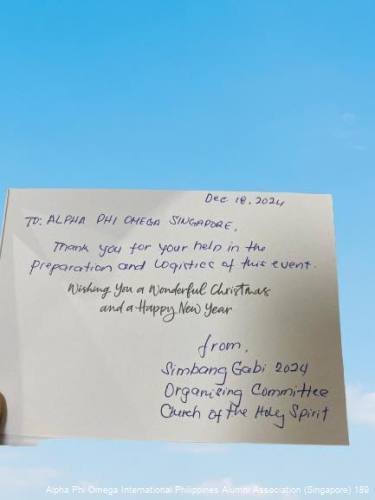 Dec 18, 2024
TO: ALPHA PHI OMEGA SINGAPORE,
Thank you for your help in the
preparation and logistics of this event.
Wishing You a Wonderful Christmas
and a Happy New Year
from,
Simbang Gabi 2024
Organising Committee
Church of the Holy Spirit
Alpha Phi Omega International Philippines Alumni Association (Singapore) 189